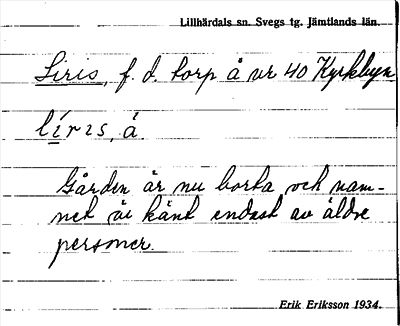 Lillhärdals sn. Svegs tg. Jämtlands län.
Liris, f. d. torp å nr 40 Kyrkbyn
líris, å.
Gården är nu borta och nam-
net är känt endast av äldre
personer.
Erik Eriksson 1934.